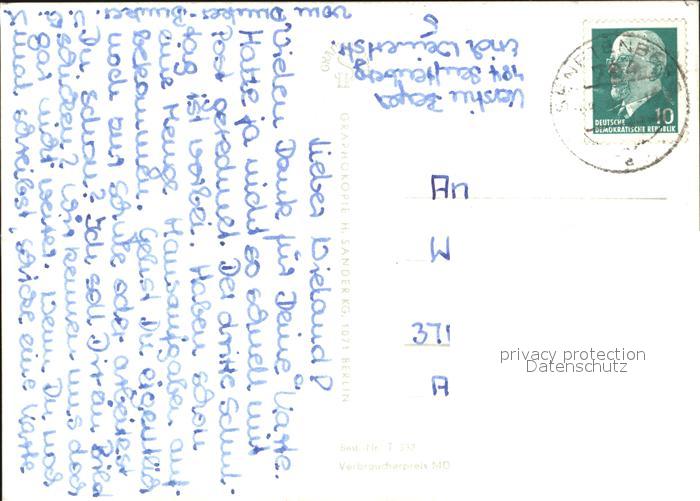 Lieber Wieland!
Vielen Dank für Deine Karte.
Hatte ja nicht so schnell mit
Post gerechnet. Der dritte Schul-
tag ist vorbei. Haben schon
eine Menge Hausaufgaben auf
bekommen. Gehst Du eigentlich
noch zur Schule oder arbeitest
Du schon? Ich soll Dir ein Bild
schicken? Wir kennen uns doch
gar nicht weiter. Wenn Du noch
mal schreibst, schicke eine Karte
vom
Kerstin
784 Senftenberg
6
An
W
371
A
DEUTSCHE
DEMOKRATISCHE REPUBLIK
10
SENFTENBERG
a
GRAPHOKOPIE H. SANDER KG, 1071 BERLIN
Best.-Nr. T
Verbraucherpreis MD
privacy protection
Datenschutz